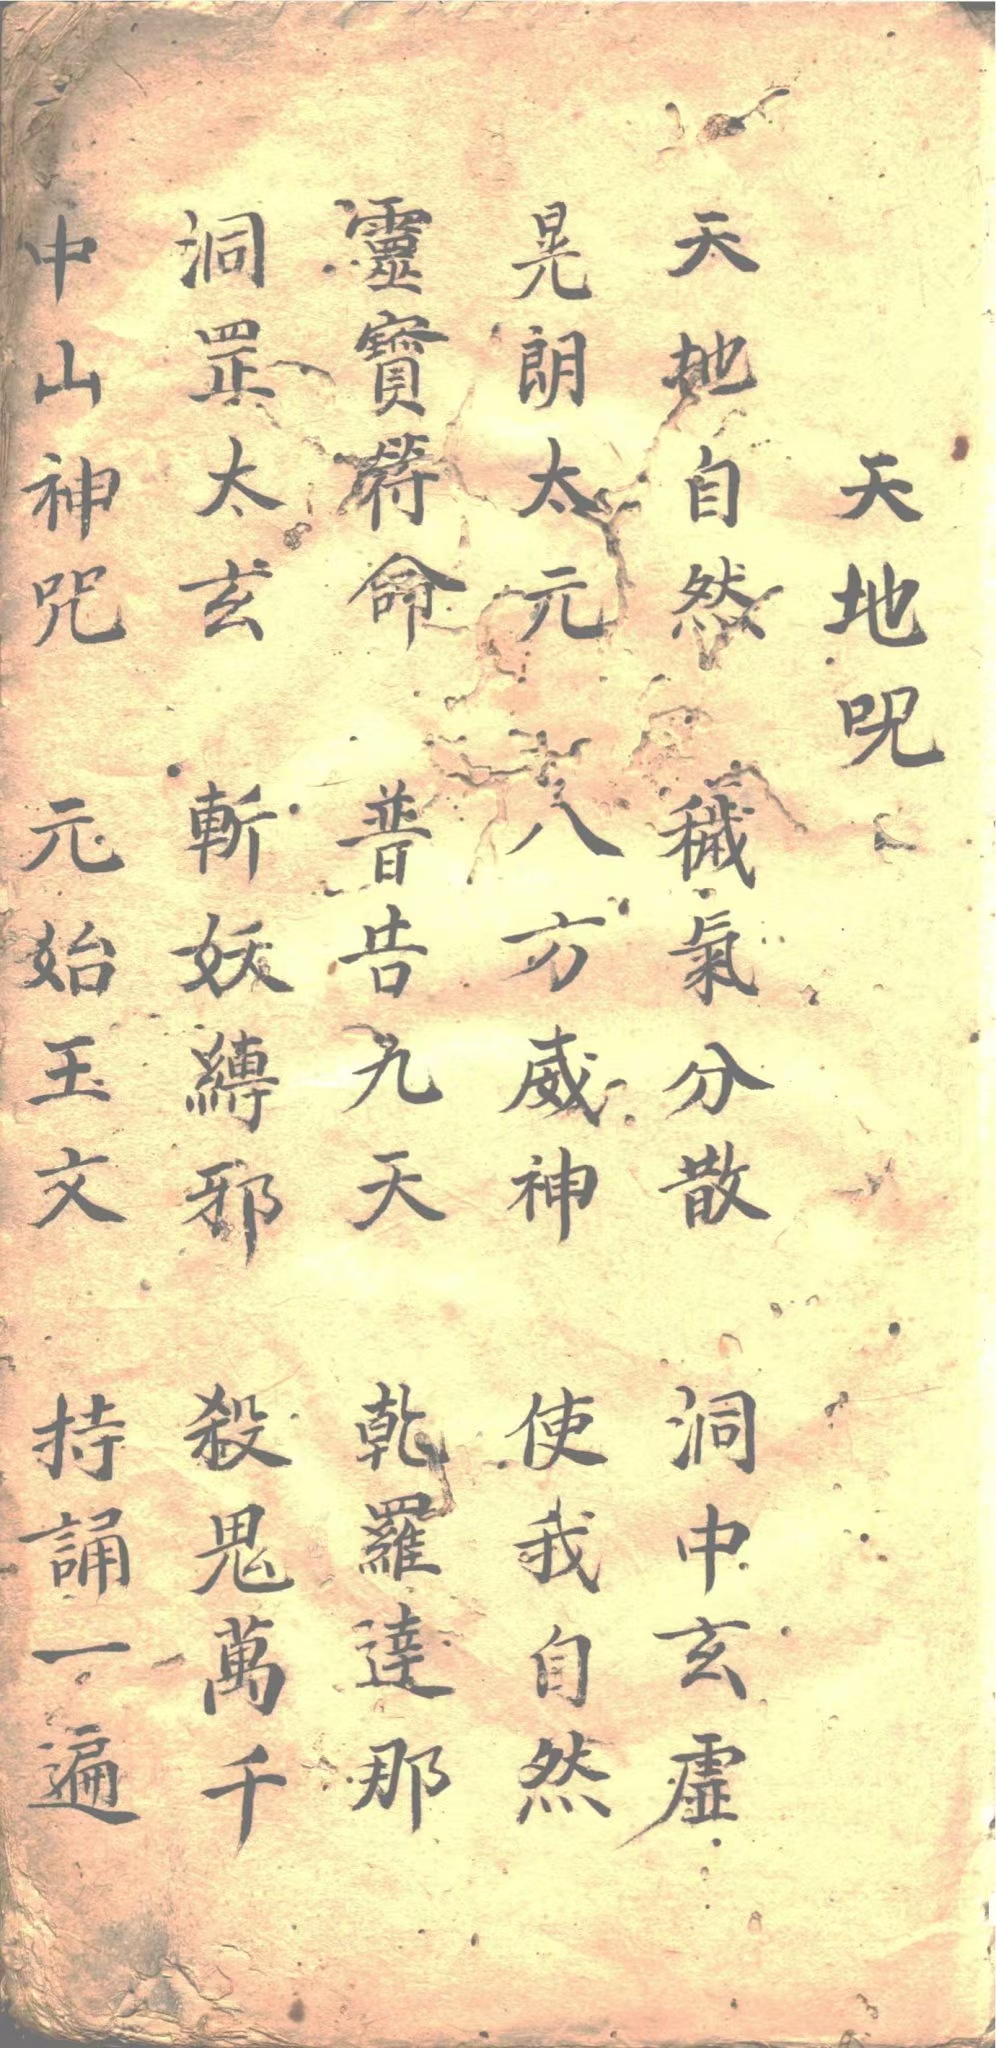 天地呪
天地自然 穢氣分散 洞中玄虛
晃朗太元 八方威神 使我自然
靈寶符命 普告九天 乾羅達那
洞罡太玄 斬妖縛邪 殺鬼萬千
中山神咒 元始玉文 持誦一遍